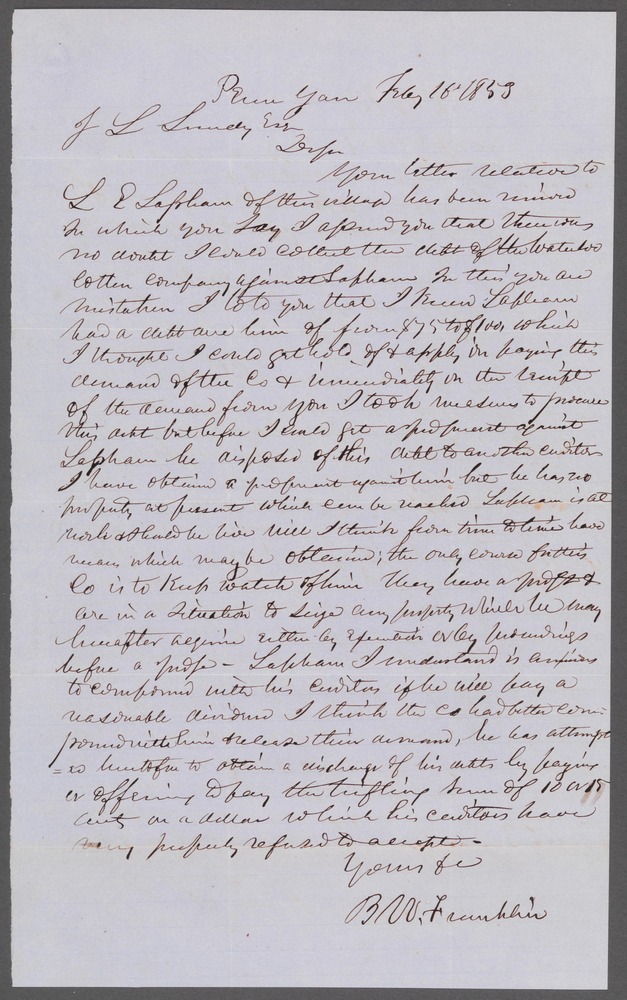 Penn Yan Feby 16th 1853
J L Lundy Esq
Dr Sir
Your letter relative to
L E Lapham of this village has been received
In which you say I assured you that there was
no doubt I could collect the debt of the Waterloo
Cotton company against Lapham In this you are
mistaken I wrote you that I knew Lapham
had a debt due him of from $75 to $100 which
I thought I could get hold of & apply in paying this
demand of the Co & immediately on the receipt
of the demand from you I took measures to procure
this debt but before I could get a judgment against
Lapham he disposed of this debt to another creditor
I have obtained a judgment against him but he has no
property at present which can be reached Lapham is at
work & should he live will I think from time to time have
means which may be obtained; the only course for this
Co is to Keep watch of him They have a judgt &
are in a situation to seize any property which he may
hereafter acquire either by Execution or by proceedings
before a judge - Lapham I understand is anxious
to compound with his creditors if he will pay a
reasonable dividend I think the Co had better com-
pound with him & release their demand, he has attempt
=ed heretofore to obtain a discharge of his debts by paying
or offering to pay the trifling sum of 10 or 15
cents on a dollar which his creditors have
very properly refused to accept -
Yours &c
B W. Franklin